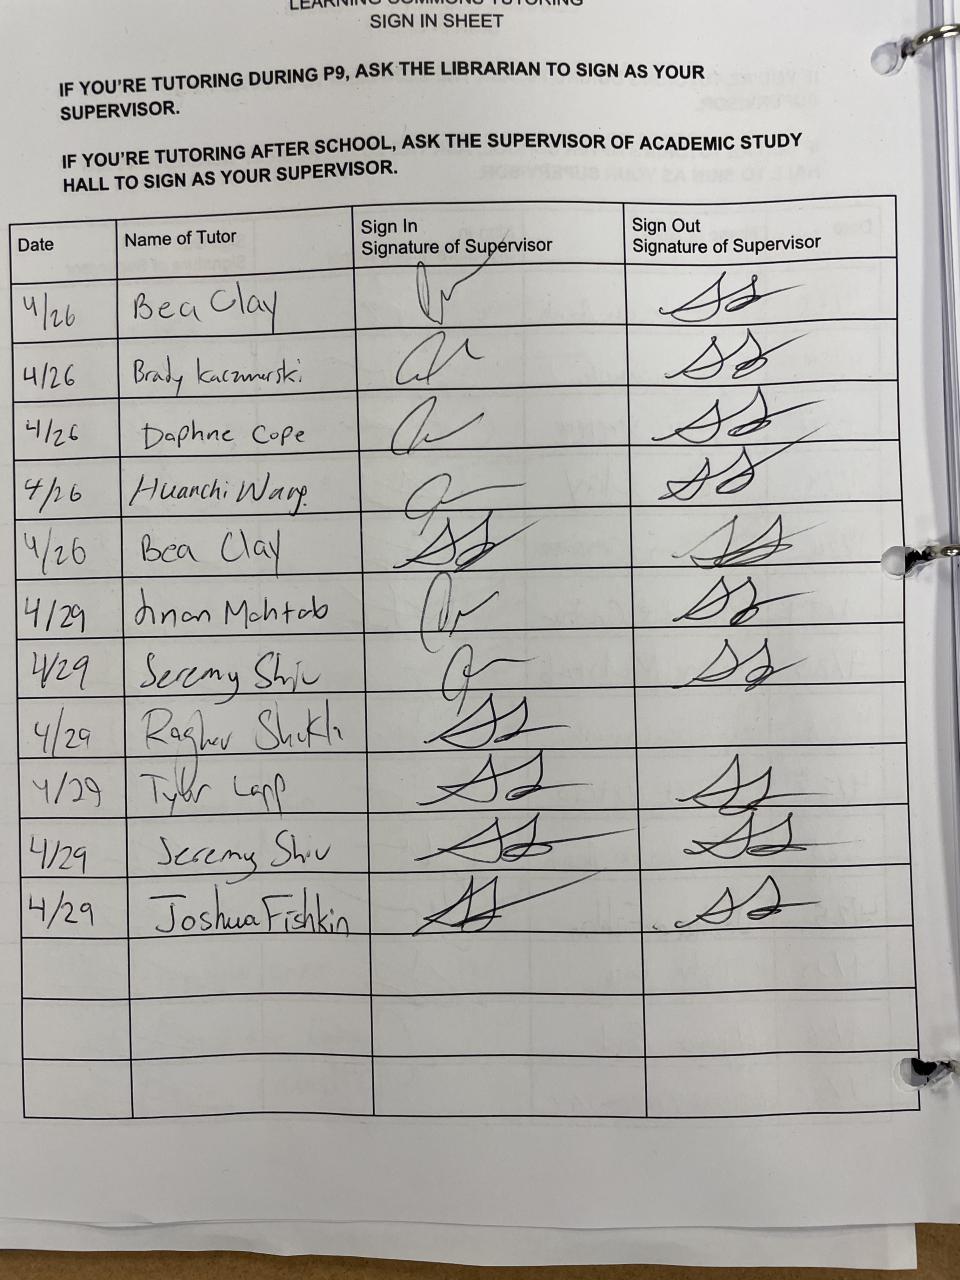 LEARNING COMMONS TUTORING
SIGN IN SHEET
IF YOU'RE TUTORING DURING P9, ASK THE LIBRARIAN TO SIGN AS YOUR
SUPERVISOR.
IF YOU'RE TUTORING AFTER SCHOOL, ASK THE SUPERVISOR OF ACADEMIC STUDY
HALL TO SIGN AS YOUR SUPERVISOR.
Date Name of Tutor Sign In Signature of Supervisor Sign Out Signature of Supervisor
4/26 Bea Clay
4/26 Brady
4/26 Daphne Cope
4/26 Huanchi Wang
4/26 Bea Clay
4/29 Mahtab
4/29 Jeremy
4/29 Raghav
4/29 Tyler Lapp
4/29 Jeremy
4/29 Joshua Fishkin